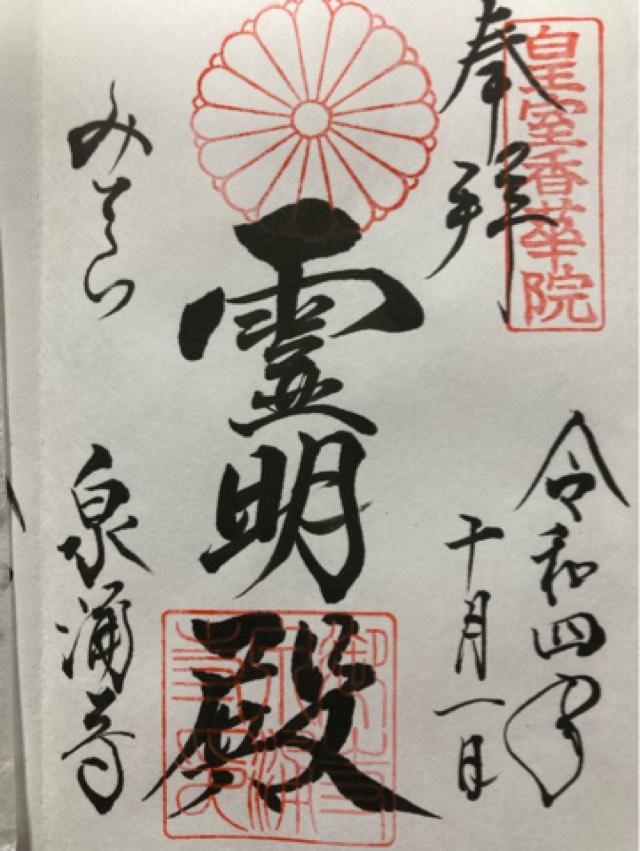 皇室香華院
奉拝
令和四年
十月一日
霊明殿
みてら
泉涌寺